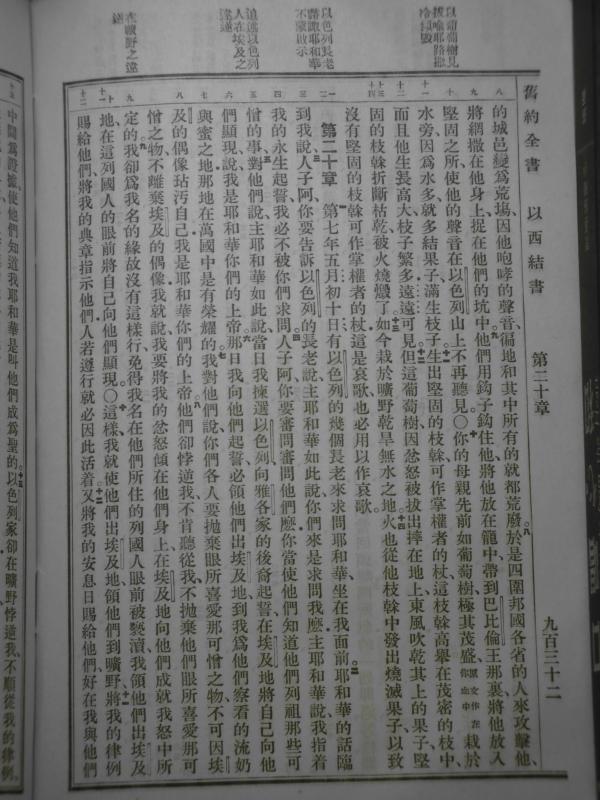 舊約全書 以西結書 第二十章 九百三十二
以葡萄樹見
冷傾毀
以色列長老
不蒙啟示
追述以色列
人在埃及之
違逆
在曠野之違
逆
的城邑變爲荒場因他咆哮的聲音徧地和其中所有的就都荒廢於是四圍邦國各省的人來攻擊他、
將網撒在他身上捉在他們的坑中他們用鈎子鈎住他將他放在籠中帶到巴比倫王那裏將他放入
堅固之所使他的聲音在以色列山上不再聽見〇你的母親先前如葡萄樹極其茂盛原文作在你血中栽於
水旁因爲水多就多結果子滿生枝子生出堅固的枝幹可作掌權者的杖這枝幹高舉在茂密的枝中、
而且他生長高大枝子繁多遠遠可見但這葡萄樹因忿怒被拔出摔在地上東風吹乾其上的果子堅
固的枝幹折斷枯乾被火燒燬了如今栽於曠野乾旱無水之地火也從他枝幹中發出燒滅果子以致
沒有堅固的枝幹可作掌權者的杖這是哀歌也必用以作哀歌。
第二十章 第七年五月初十日有以色列的幾個長老來求問耶和華坐在我面前耶和華的話臨
到我說人子阿你要告訴以色列的長老說主耶和華如此說你們來是求問我麼主耶和華說我指着
我的永生起誓我必不被你們求問人子阿你要審問審問他們麼你當使他們知道他們列祖那些可
憎的事對他們說主耶和華如此說當日我揀選以色列向雅各家的後裔起誓在埃及地將自己向他
們顯現說我是耶和華你們的上帝那日我向他們起誓必領他們出埃及地到我爲他們察看的流奶
與蜜之地那地在萬國中是有榮耀的我對他們說你們各人要拋棄眼所喜愛那可憎之物不可因埃
及的偶像玷污自己我是耶和華你們的上帝他們卻悖逆我不肯聽從我不拋棄他們眼所喜愛那可
憎之物不離棄埃及的偶像我就說我要將我的忿怒傾在他們身上在埃及地向他們成就我怒中所
定的我卻爲我名的緣故沒有這樣行免得我名在他們所住的列國人眼前被褻瀆我領他們出埃及
地在這列國人的眼前將自己向他們顯現〇這樣我就使他們出埃及地領他們到曠野將我的律例
賜給他們將我的典章指示他們人若遵行就必因此活着又將我的安息日賜給他們好在我與他們
中間爲證據使他們知道我耶和華是叫他們成爲聖的以色列家卻在曠野悖逆我不順從我的律例、